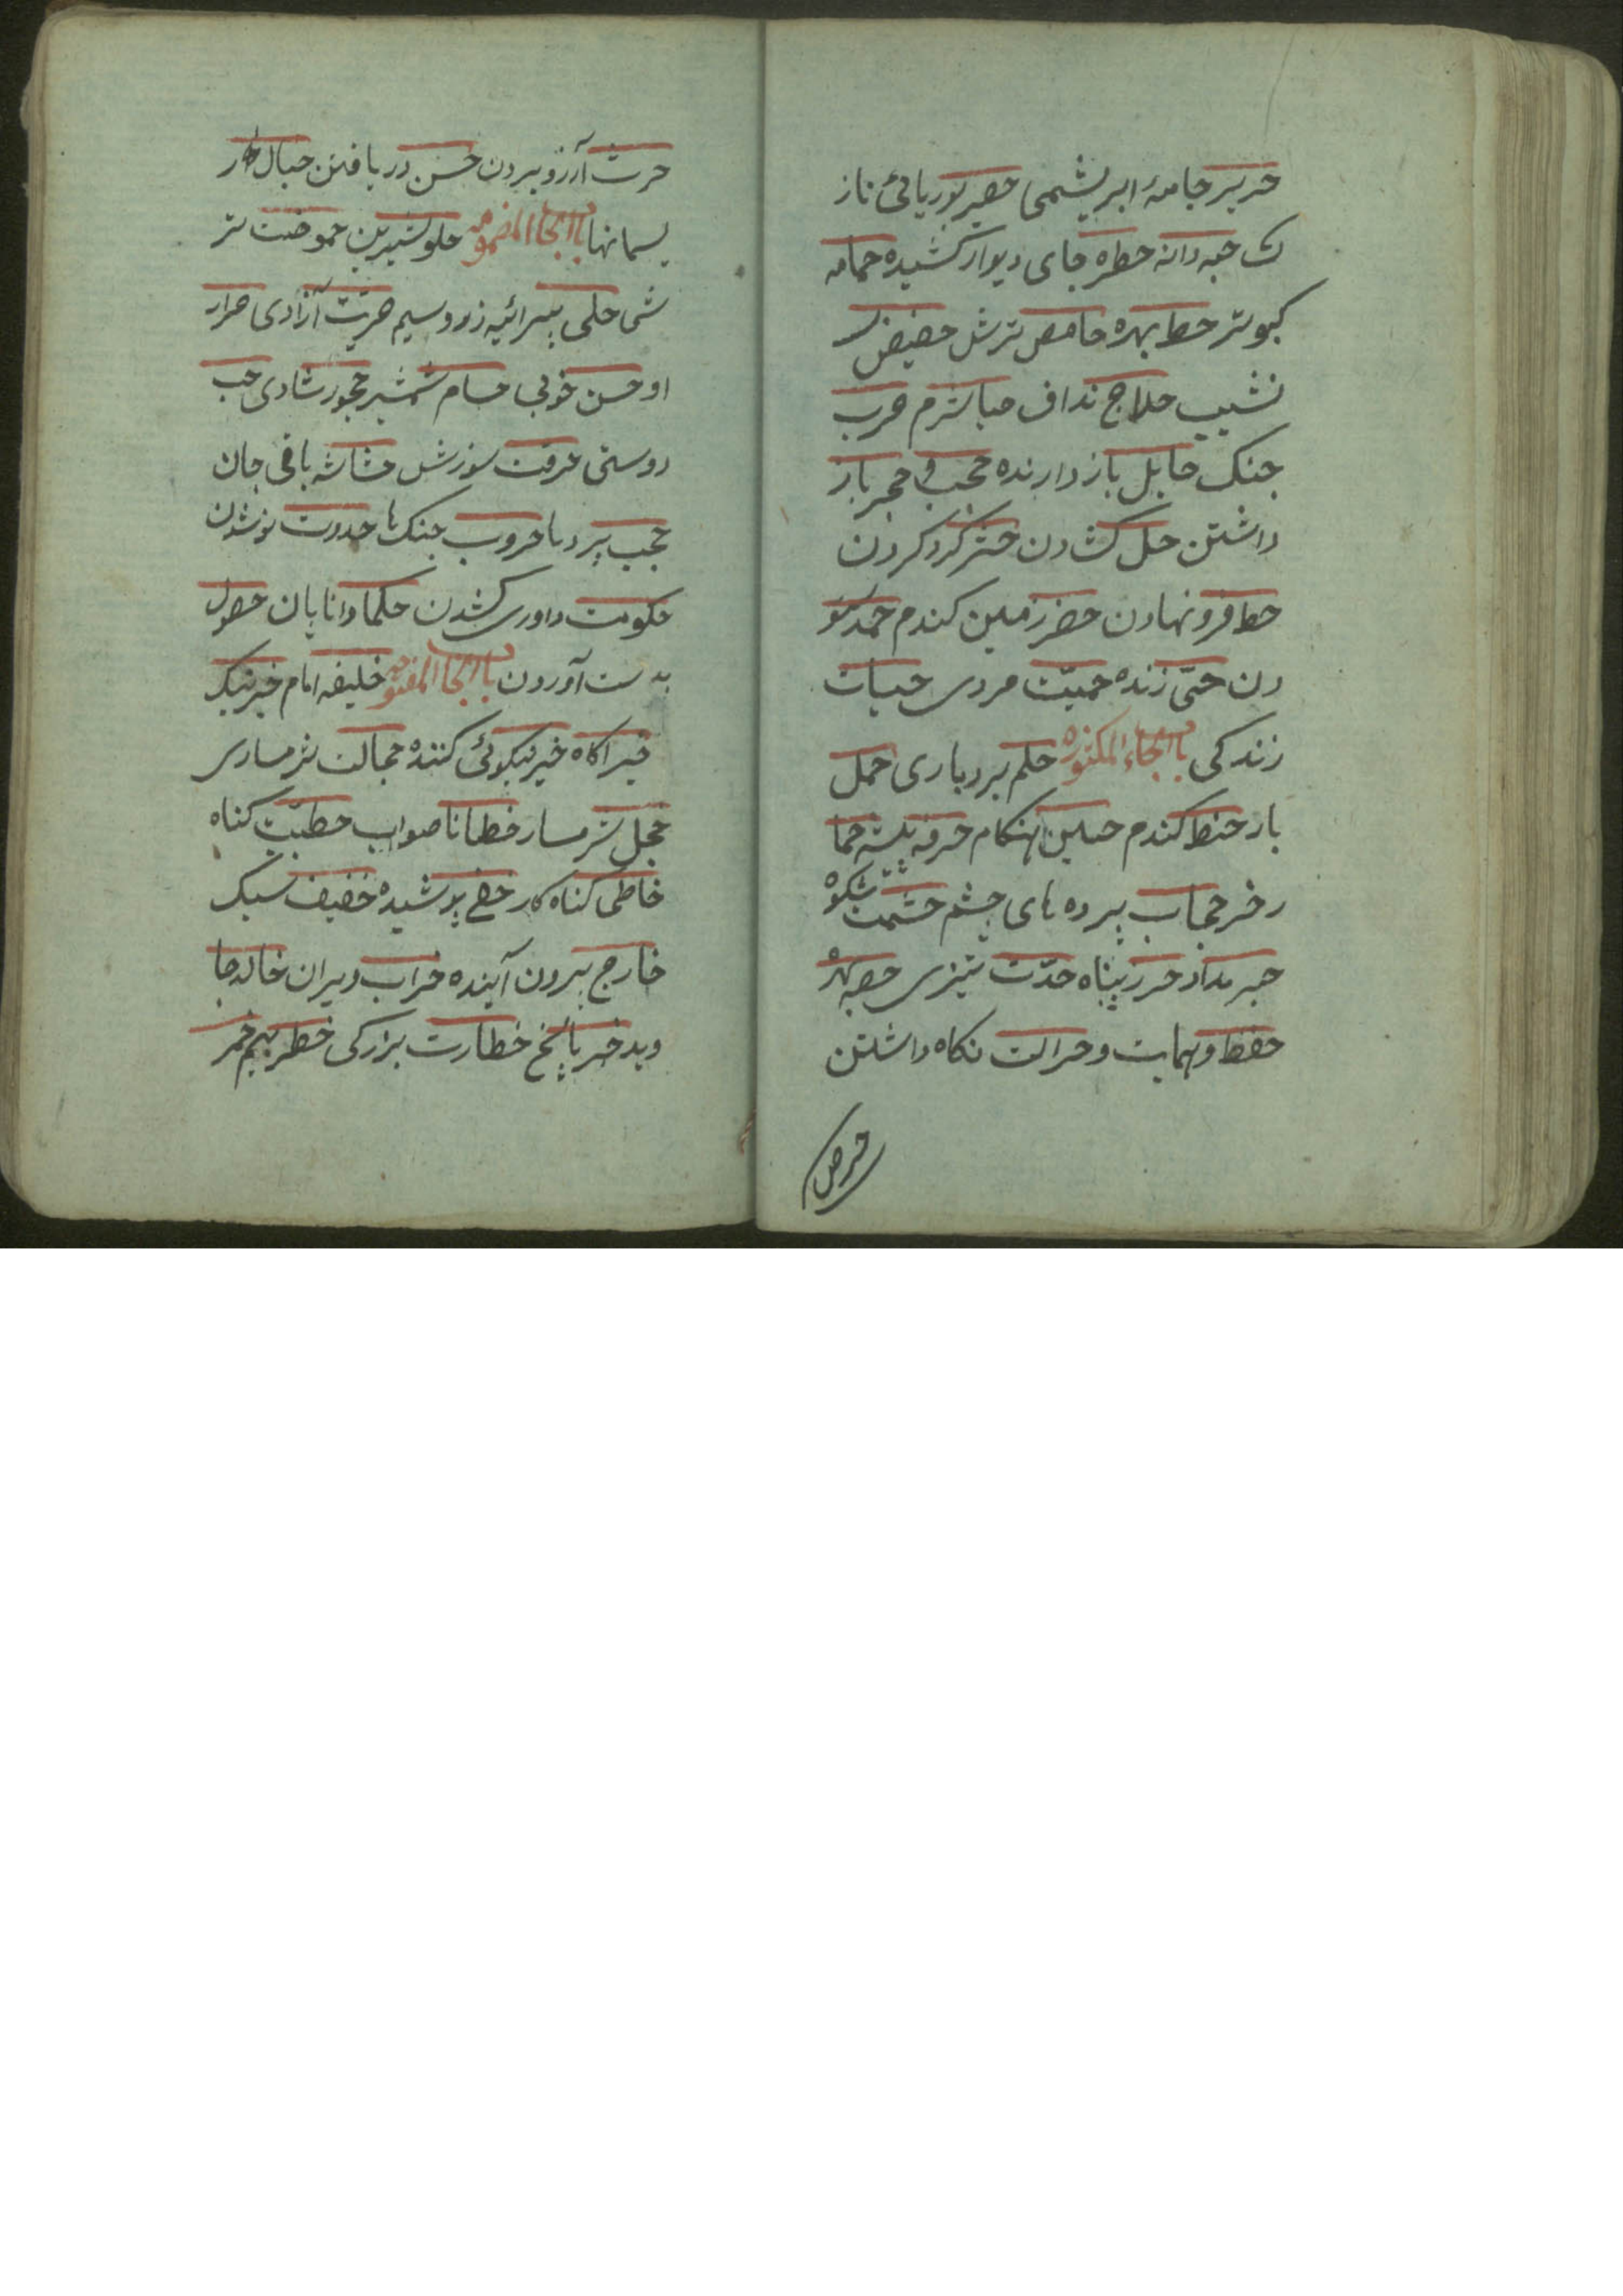 حریر جامهٔ ابریشمی حصیر بوریائی ناز
ک حبه دانه حظره جای دیوار کشیده حمامه
کبوتر حظ بهره حامض ترش حضیض
نشیب حلاج نداف حیا شرم حرب
جنک حایل باز دارنده حجب و حجر باز
داشتن حل کشادن حشر کرد کردن
حط فرو نهادن حضر زمین کندم حمد ستو
دن حیّ زنده حمیّت مردی حیات
زندکی باب الحاء المکسوره حلم بردباری حمل
بار حنطه کندم حین هنکام حرفه پیشه حما
ر خر حجاب پرده های چشم حشمت شکوه
حبر مداد حرز پناه حدّت تیزی حصه بهره
حفظ و حمایت و حراست نکاه داشتن
حرص
حرث آرزو بردن حسن دریافتن حبال ر
یسمانها باب الحا المضمومه حلو شیرین حموضت تر
شی حلی پیرائیه زر و سیم حریّت آزادی احرار
او حسن خوبی حسام شمشیر حبور شادی حب
دوستی حرقت سوزش حشاشه باقی جان
حجب پردها حروب جنک ها حدوث نو شدن
حکومت داوری کشدن حکما دانایان حصول
بدست آوردن باب الخا المفتوحه خلیفه امام خیر نیک
خبر اکاه خیر نیکوئی کننده خجالت شرمساری
خجل شرمسار خطا ناصواب خطیّت کناه
خاطی کناه کار خفی پوشیده خفیف سبک
خارج بیرون آینده خراب ویران خالد جا
وید خبر پاسخ خطارت بزرکی خطر بیم خمر